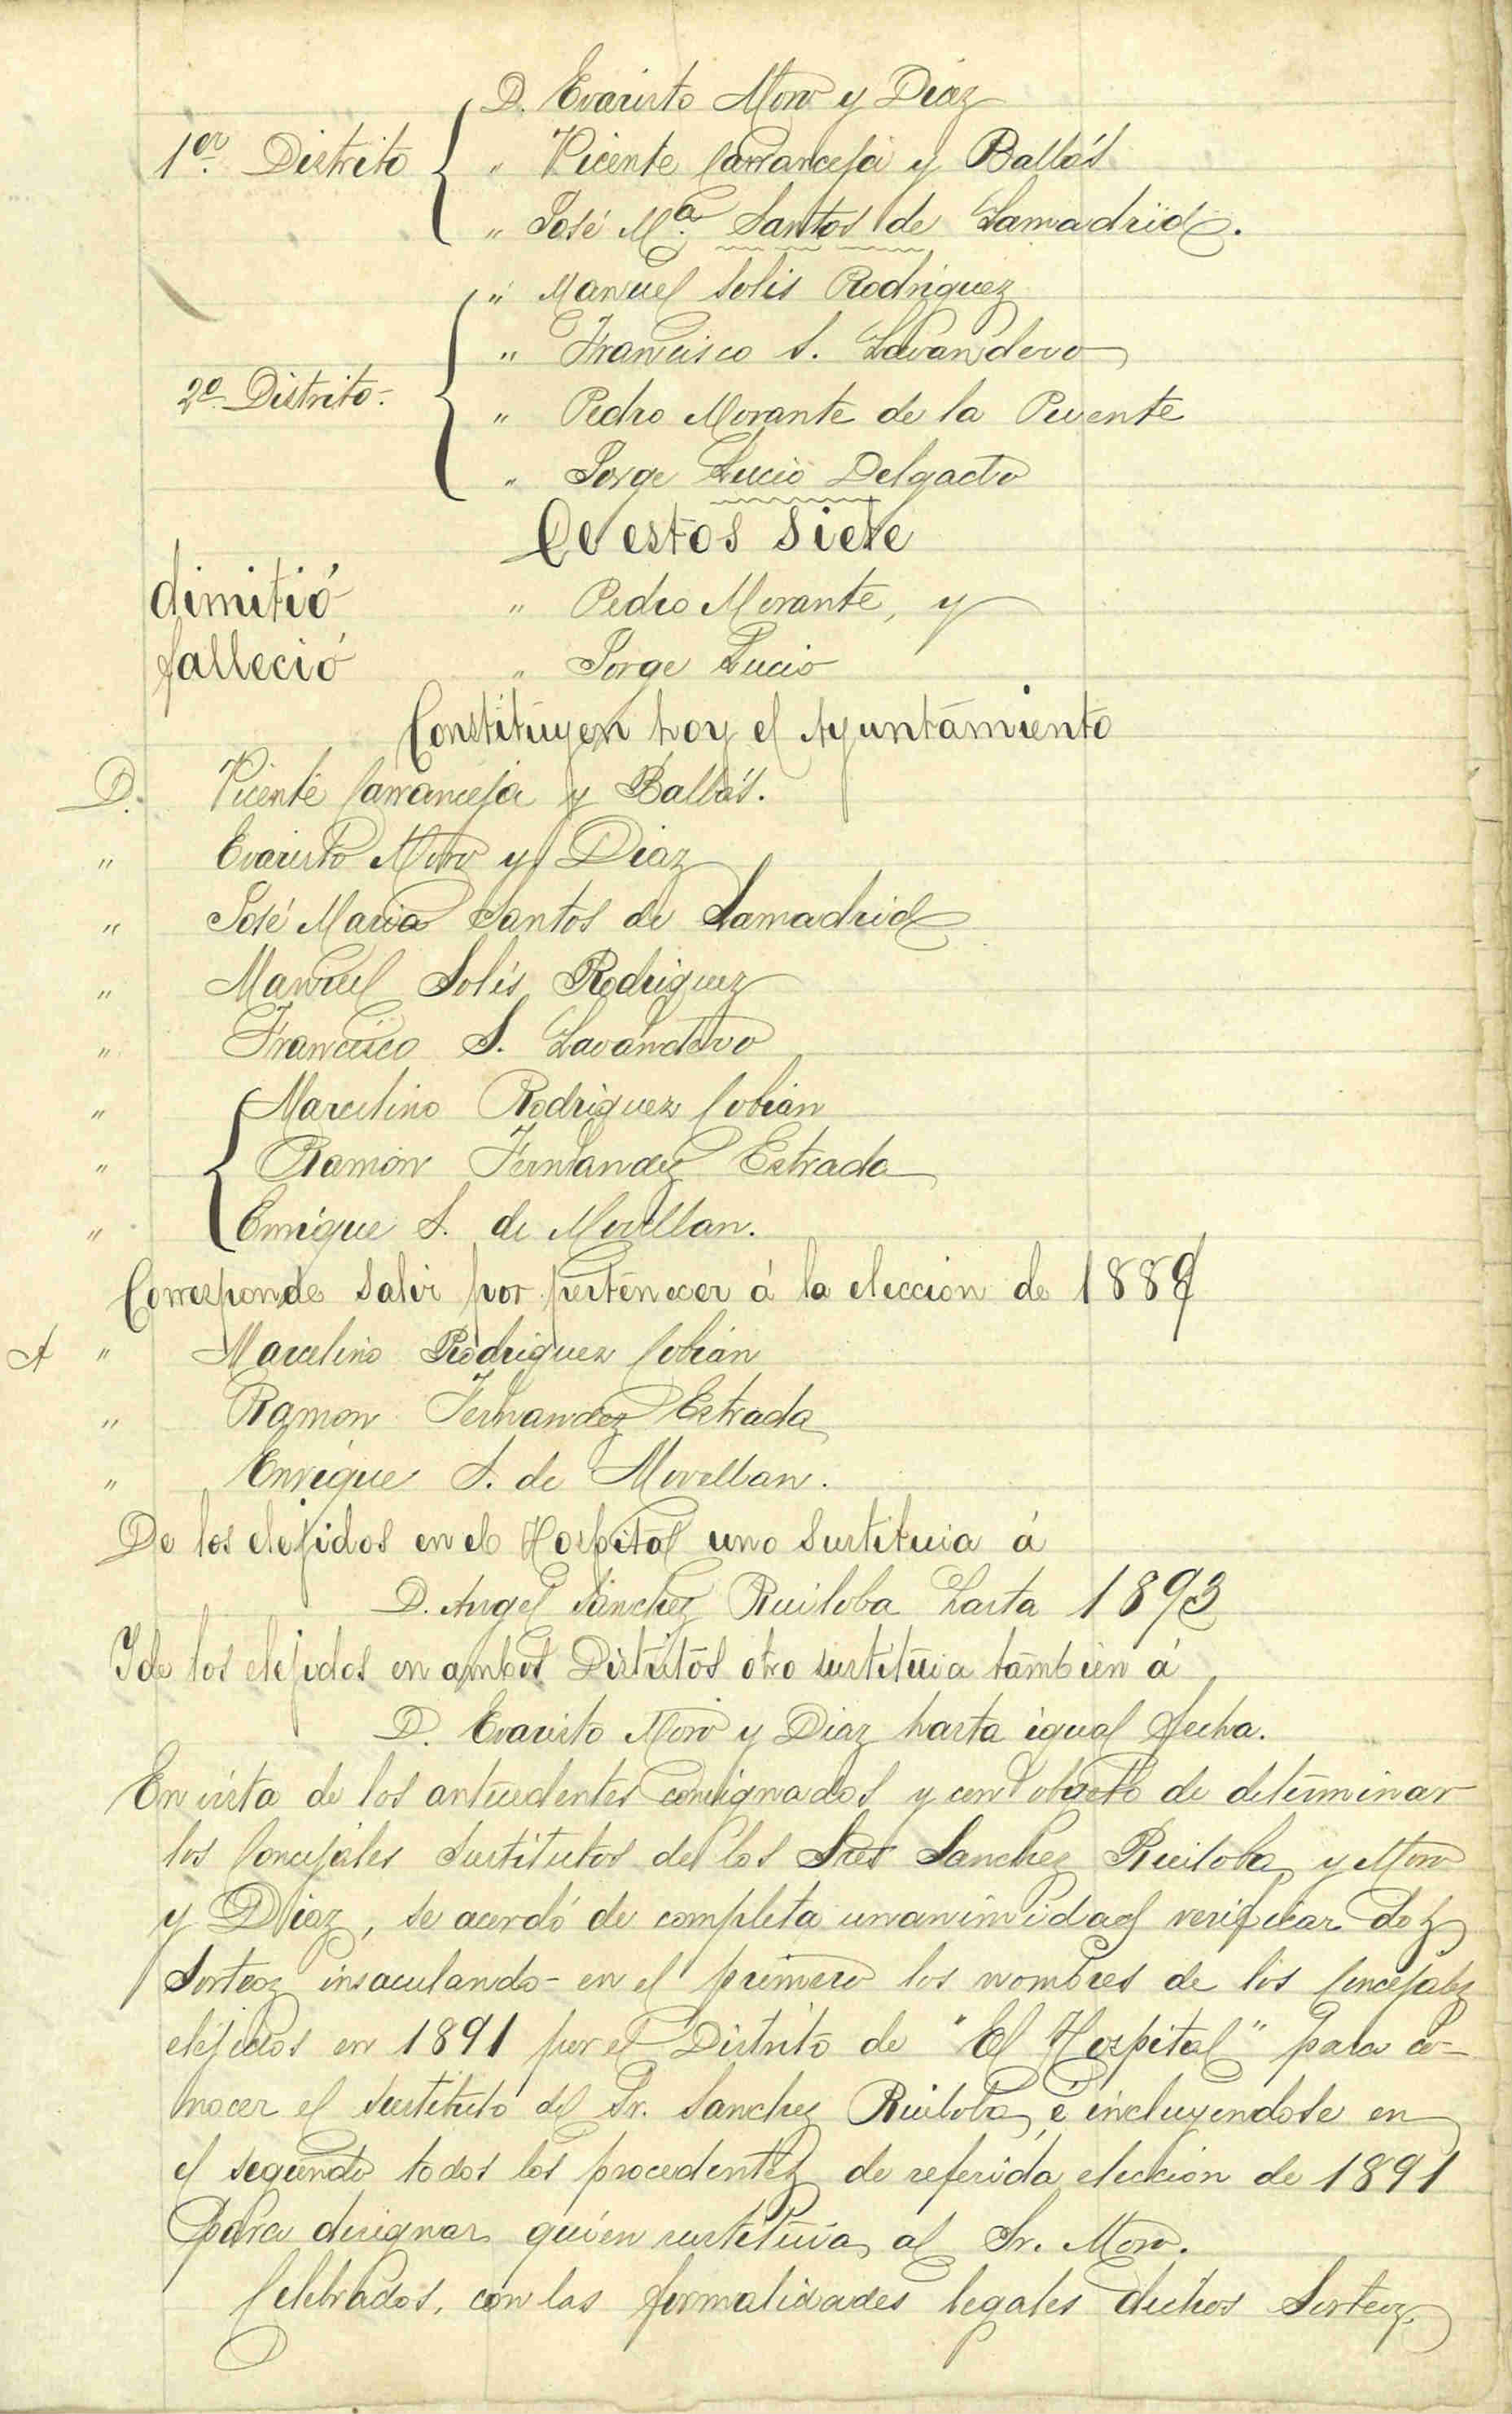 D. Evaristo Moro y Diaz
1er. Distrito " Vicente Carranceja y Ballás
" José Mª. Santos de Lamadrid.
" Manuel Solis Rodriguez
" Francisco S. Lavandero
2º. Distrito.- " Pedro Morante de la Puente
" Jorge Lucio Delgado
De estos siete
dimitió " Pedro Morante, y
falleció " Jorge Lucio
Constituyen hoy el Ayuntamiento
D. Vicente Carranceja y Ballás.
" Evaristo Moro y Diaz
" José Maria Santos de Lamadrid
" Manuel Solís Rodriguez
" Francisco S. Lavandero
" Marcelino Rodriguez Cobian
" Ramón Fernandez Estrada
" Enrique S. de Movellan.
Corresponde salir por pertenecer á la eleccion de 1889
A " Marcelino Rodriguez Cobián
" Ramon Fernandez Estrada
" Enrique S. de Movellan.
De los elejidos en el Hospital uno sustituia á
D. Angel Sanchez Ruiloba hasta 1893
Y de los elejidos en ambos Distritos otro sustituia tambien á
D. Evaristo Moro y Diaz hasta igual fecha.
En vista de los antecedentes consignados y con objeto de determinar
los Concejales sustitutos de los Sres Sanchez Ruiloba y Moro
y Diaz, se acordó de completa unanimidad verificar dos
Sorteos insaculando- en el primero los nombres de los Concejales
elejidos en 1891 por el Distrito de "El Hospital" para co-
nocer el sustituto del Sr. Sanchez Ruiloba, é incluyendose en
el segundo todos los procedentes de referida eleccion de 1891
para designar quien sustituia al Sr. Moro.
Celebrados, con las formalidades legales dichos Sorteos,